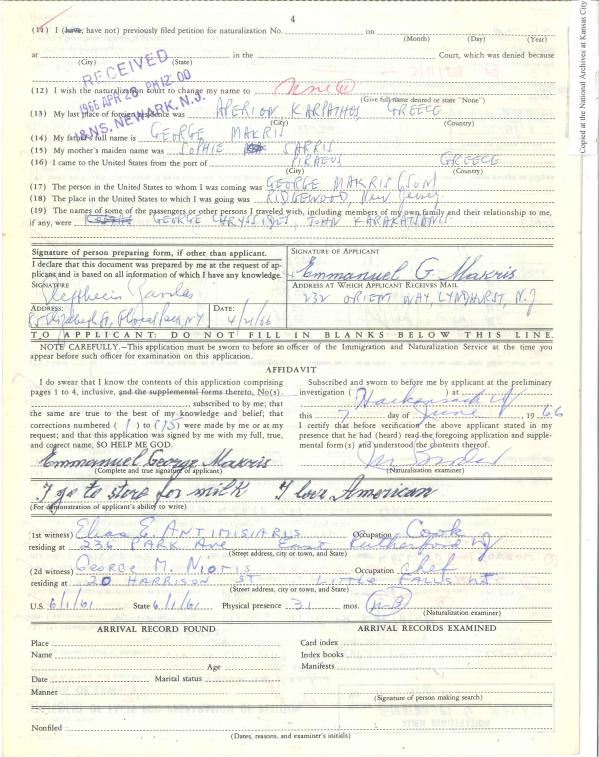 4
(11) I (have, have not) previously filed petition for naturalization No. on
(Month) (Day) (Year)
at in the Court, which was denied because
(City) (State)
RECEIVED
1966 APR 28 PM 12:00
I&NS. NEWARK, N.J.
(12) I wish the naturalization court to change my name to None (1)
(Give full name desired or state "None")
(13) My last place of foreign residence was APERION KARPATHOS GREECE
(City) (Country)
(14) My father's full name is GEORGE MAKRIS
(15) My mother's maiden name was SOPHIE SARRIS
(16) I came to the United States from the port of PIRAEUS GREECE
(City) (Country)
(17) The person in the United States to whom I was coming was GEORGE MAKRIS (SON)
(18) The place in the United States to which I was going was RIDGEWOOD, New Jersey
(19) The names of some of the passengers or other persons I traveled with, including members of my own family and their relationship to me,
if any, were GEORGE CHRYSSIDES, JOHN KARAKATSANIS
Signature of person preparing form, if other than applicant.
I declare that this document was prepared by me at the request of ap-
plicant and is based on all information of which I have any knowledge.
SIGNATURE
ADDRESS: DATE:
4/21/66
SIGNATURE OF APPLICANT
Emmanuel G. Makris
ADDRESS AT WHICH APPLICANT RECEIVES MAIL
232 ORIENT WAY, LYNDHURST, N.J
TO APPLICANT: DO NOT FILL IN BLANKS BELOW THIS LINE.
NOTE CAREFULLY.—This application must be sworn to before an officer of the Immigration and Naturalization Service at the time you
appear before such officer for examination on this application.
AFFIDAVIT
I do swear that I know the contents of this application comprising
pages 1 to 4, inclusive, and the supplemental forms thereto, No(s).
, subscribed to by me; that
the same are true to the best of my knowledge and belief; that
corrections numbered (1) to (15) were made by me or at my
request; and that this application was signed by me with my full, true,
and correct name, SO HELP ME GOD.
Emmanuel George Makris
(Complete and true signature of applicant)
Subscribed and sworn to before me by applicant at the preliminary
investigation ( ) at
Hackensack NJ
this 7 day of June, 1966
I certify that before verification the above applicant stated in my
presence that he had (heard) read the foregoing application and supple-
mental form(s) and understood the contents thereof.
(Naturalization examiner)
I go to store for milk I love American
(For demonstration of applicant's ability to write)
(1st witness) Elias E. ANTIMISIARIS Occupation Cook
residing at 236 PARK Ave East Rutherford NJ
(Street address, city or town, and State)
(2d witness) George M. Niotis Occupation Chef
residing at 20 HARRISON ST LITTLE FALLS NJ
(Street address, city or town, and State)
U.S. 6/1/61 State 6/1/61 Physical presence 31 mos.
(Naturalization examiner)
ARRIVAL RECORD FOUND
Place
Name
Age
Date Marital status
Manner
ARRIVAL RECORDS EXAMINED
Card index
Index books
Manifests
(Signature of person making search)
Nonfiled
(Dates, reasons, and examiner's initials)
Copied at the National Archives at Kansas City